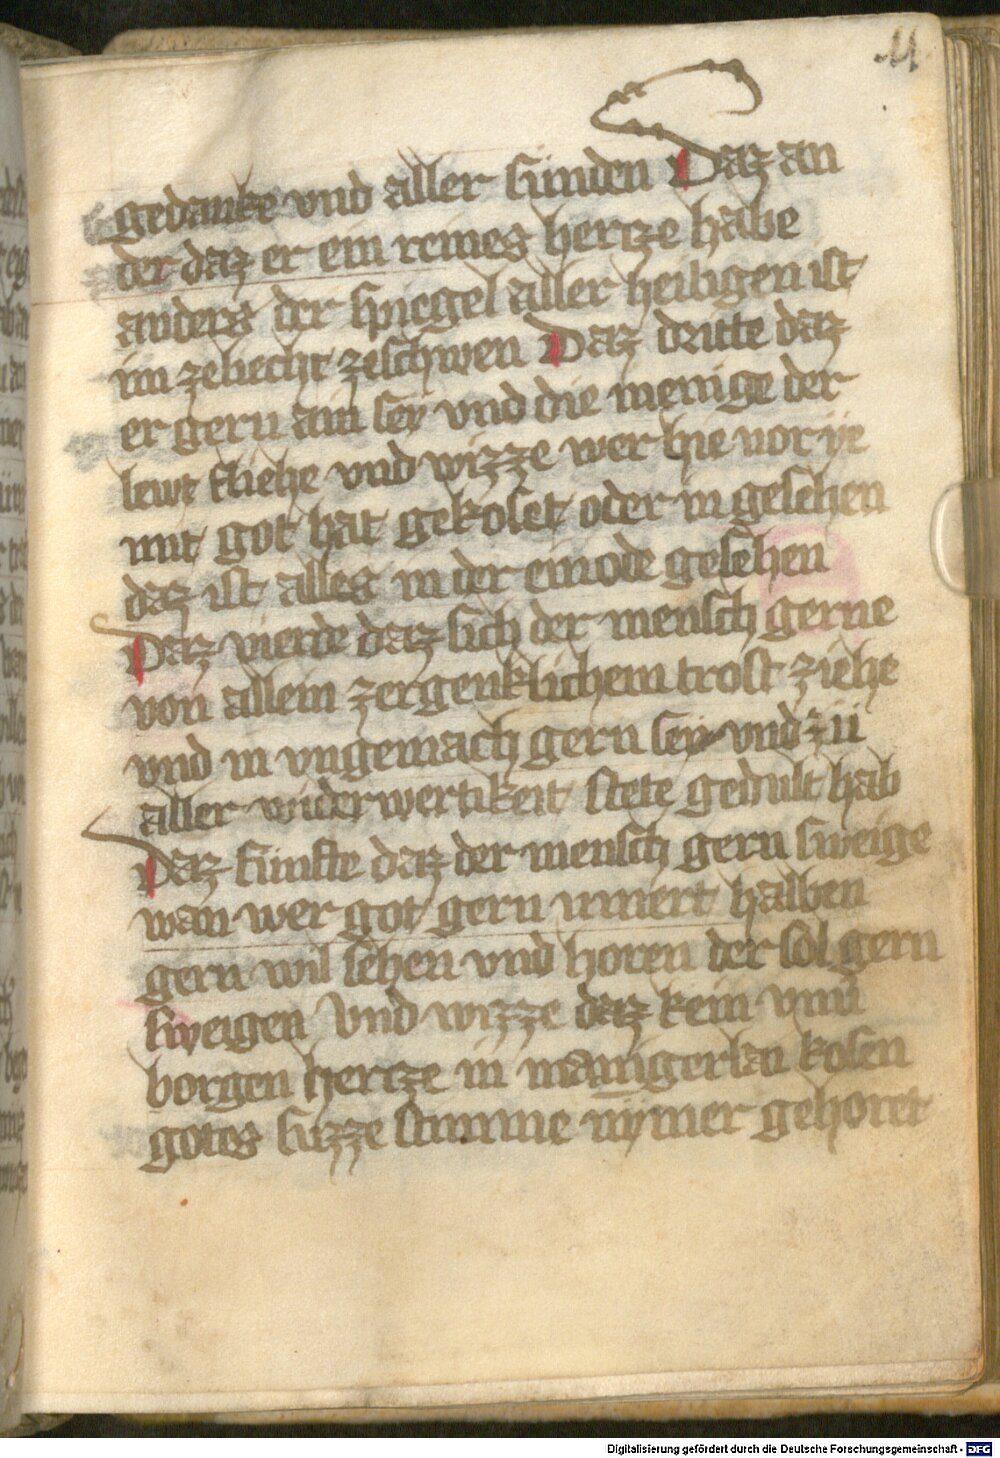 11
gedanke vnd aller sunden Daz an
der daz er ein reines hertze habe
anders der spiegel aller heiligen ist
im zehecht zeschwen Daz dritte daz
er gern ain sey vnd die menige der
lewt fliehe vnd wizze wer hie uor ye
mit got hat gekoset oder in gesehen
daz ist alles in der einode gesehen
Daz vierde daz sich der mensch gerne
von allem zergenklichem trost ziehe
vnd in vngemach gern sey vnd zů
aller widerwertikeit stete gedult hab
Daz funfte daz der mensch gern sweige
wan wer got gern innert halben
gern wil sehen vnd horen der sol gern
sweigen Vnd wizze daz kein vnu
borgen hertze in manigerlai kosen
gotes suzze stimme nymer gehoret
Digitalisierung gefördert durch die Deutsche Forschungsgemeinschaft - DFG